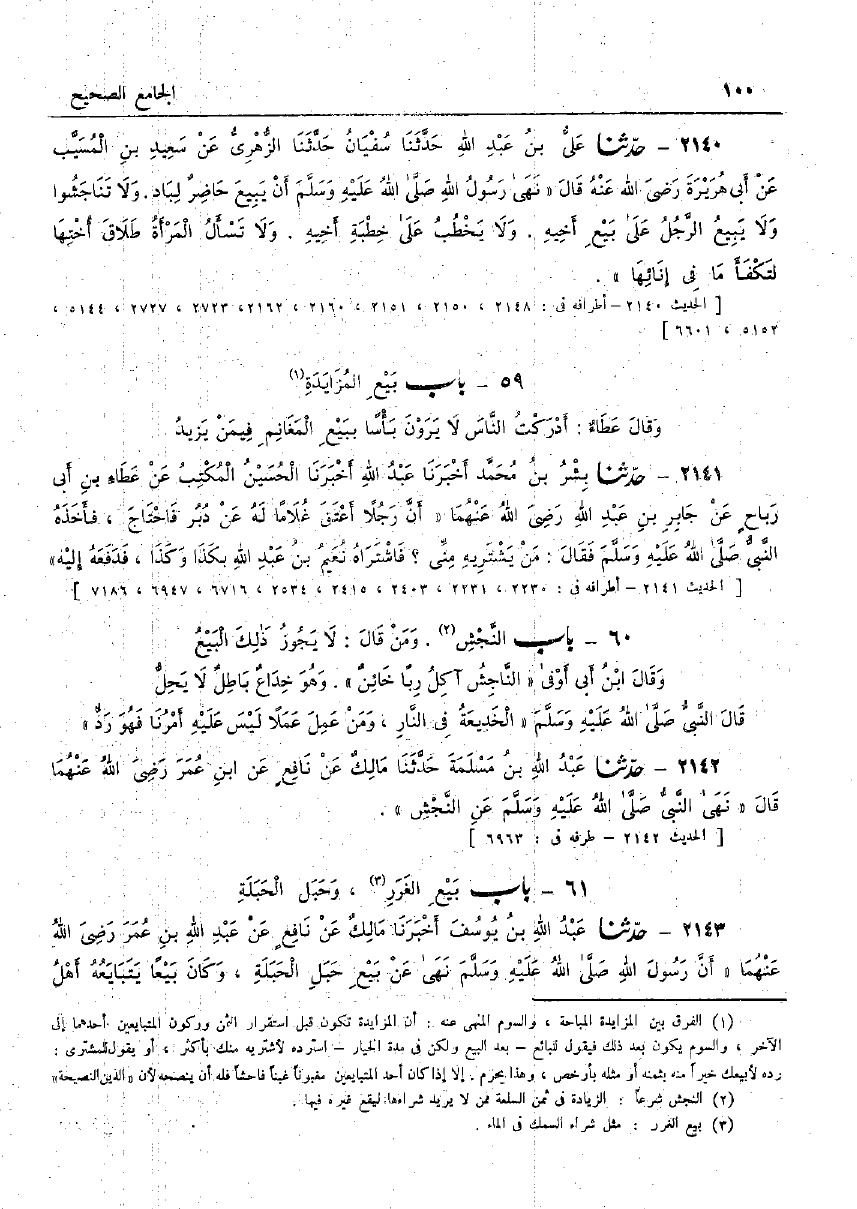 ١٠٠ الجامع الصحيح
٢١٤٠ – حدّثنا عَلىُّ بنُ عَبْدِ اللهِ حَدَّثَنَا سُفْيَانُ حَدَّثَنَا الزُّهْرِىُّ عَنْ سَعِيدِ بنِ الْمُسَيَّبِ
عَنْ أَبى هُرَيْرَةَ رَضىَ الله عَنْهُ قَالَ « نَهَىٰ رَسُولُ اللهِ صَلَّى اللهُ عَلَيْهِ وَسَلَّمَ أَنْ يَبِيعَ حَاضِرٌ لِبَادٍ . وَلَا تَنَاجَشُوا
وَلَا يَبِيعُ الرَّجُلُ عَلَىٰ بَيْعِ أَخيهِ . وَلَا يَخْطُبُ عَلَىٰ خِطْبَةِ أَخِيهِ . وَلَا تَسْأَلُ الْمَرْأَةُ طَلَاقَ أُخْتِهَا
لتَكْفَأَ مَا فى إِنَائِهَا » .
[ الحديث ٢١٤٠ – أطرافه فى : ٢١٤٨ ، ٢١٥٠ ، ٢١٥١ ، ٢١٦٠ ، ٢١٦٢، ٢٧٢٣ ، ٢٧٢٧ ، ٥١٤٤ ،
٥١٥٢ ، ٦٦٠١ ]
٥٩ – باب بَيْعِ المُزَايَدَةِ(١)
وَقَالَ عَطَاءٌ : أَدْرَكْتُ النَّاسَ لَا يَرَوْنَ بَأْسًا ببَيْعِ الْمَغَانِمِ فِيمَنْ يَزِيدُ
٢١٤١ – حدّثنا بِشْرُ بنُ مُحَمَّد أَخْبَرَنَا عَبْدُ اللهِ أَخْبَرَنَا الْحُسَيْنُ الْمُكْتِبُ عَنْ عَطَاءِ بنِ أَبى
رَبَاحٍ عَنْ جَابِرِ بنِ عَبْدِ اللهِ رَضىَ اللهُ عَنْهُمَا « أَنَّ رَجُلًا أَعْتَقَ غُلَامًا لَهُ عَنْ دُبُرٍ فَاحْتَاجَ ، فَأَخَذَهُ
النَّبىُّ صَلَّى اللهُ عَلَيْهِ وَسَلَّمَ فَقَالَ : مَنْ يَشْتَرِيهِ مِنِّى ؟ فَاشْتَرَاهُ نُعَيمُ بنُ عَبْدِ اللهِ بكَذَا وَكَذَا ، فَدَفَعَهُ إِلَيْهِ»
[ الحديث ٢١٤١ – أطرافه فى : ٢٢٣٠ ، ٢٢٣١ ، ٢٤٠٣ ، ٢٤١٥ ، ٢٥٣٤ ، ٦٧١٦ ، ٦٩٤٧ ، ٧١٨٦ ]
٦٠ – باب النَّجْشِ(٢) . وَمَنْ قَالَ : لَا يَجُوزُ ذَلِكَ الْبَيْعُ
وَقَالَ ابْنُ أَبى أَوْفىٰ « النَّاجشُ آكِلُ رِبًا خَائِنٌ » . وَهُوَ خِدَاعٌ بَاطِلٌ لَا يَحِلُّ
قَالَ النَّبىُّ صَلَّى اللهُ عَلَيْهِ وَسَلَّمَ « الْخَدِيعَةُ فى النَّارِ ، وَمَنْ عَمِلَ عَمَلًا لَيْسَ عَلَيْهِ أَمْرُنَا فَهُوَ رَدٌّ »
٢١٤٢ – حدّثنا عَبْدُ اللهِ بنُ مَسْلَمَةَ حَدَّثَنَا مَالِكٌ عَنْ نَافِعٍ عَن ابنِ عُمَرَ رَضِىَ اللهُ عَنْهُمَا
قَالَ « نَهَىٰ النَّبىُّ صَلَّى اللهُ عَلَيْهِ وَسَلَّمَ عَنِ النَّجْشِ » .
[ الحديث ٢١٤٢ – طرفه فى : ٦٩٦٣ ]
٦١ – باب بَيْعِ الغَرَرِ(٣) ، وَحَبَلِ الْحَبَلَةِ
٢١٤٣ – حدّثنا عَبْدُ اللهِ بنُ يُوسُفَ أَخْبَرَنَا مَالِكٌ عَنْ نَافِعٍ عَنْ عَبْدِ اللهِ بنِ عُمَرَ رَضِىَ اللهُ
عَنْهُمَا « أَنَّ رَسُولَ اللهِ صَلَّى اللهُ عَلَيْهِ وَسَلَّمَ نَهَىٰ عَنْ بَيْعِ حَبَلِ الْحَبَلَةِ ، وَكَانَ بَيْعًا يَتَبَايَعُهُ أَهْلُ
(١) الفرق بين المزايدة المباحة ، والسوم المنهى عنه : أن المزايدة تكون قبل استقرار الثمن وركون المتبايعين أحدهما إلى
الآخر ، والسوم يكون بعد ذلك فيقول للبائع – بعد البيع ولكن فى مدة الخيار – استرده لأشتريه منك بأكثر ، أو يقول للمشترى :
رده لأبيعك خيراً منه بثمنه أو مثله بأرخص ، وهذا يحرم . إلا إذا كان أحد المتبايعين مغبوناً غبناً فاحشاً فله أن ينصحه لأن « الدين النصيحة»
(٢) النجش شرعاً : الزيادة فى ثمن السلعة ممن لا يريد شراءها ليقع غيره فيها .
(٣) بيع الغرر : مثل شراء السمك فى الماء .